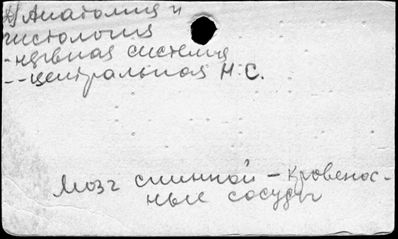 Анатомия и
гистология
-нервная система
--центральная Н.С.
Мозг спинной - кровенос-
ные сосуды